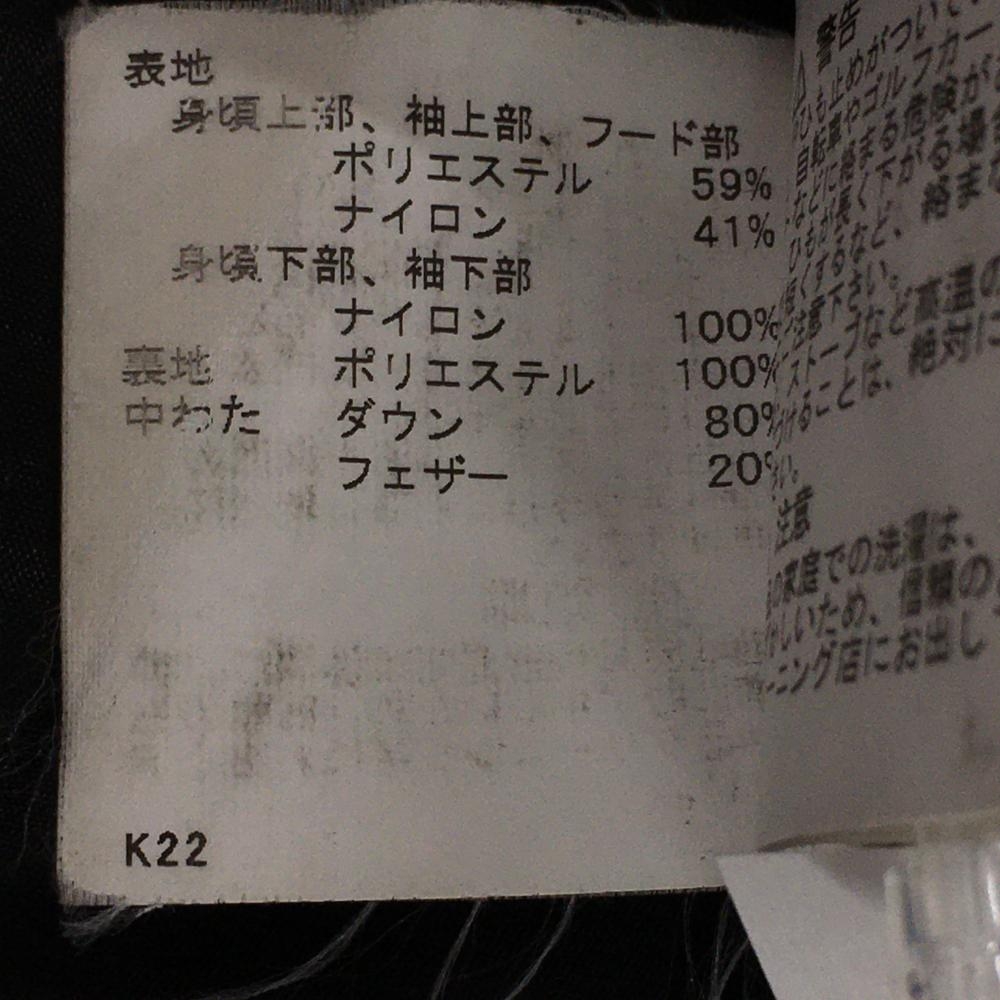 表地
身頃上部、袖上部、フード部
ポリエステル 59%
ナイロン 41%
身頃下部、袖下部
ナイロン 100%
裏地 ポリエステル 100%
中わた ダウン 80%
フェザー 20%
K22
警告
ひも止めがつい
転車やゴルフカー
に絡まる危険が
長く下がる場
するなど、絡ま
注意下さい。
ストーブなど高温の
けることは、絶対に
注意
家庭での洗濯は、
しいため、信頼の
ーニング店にお出し